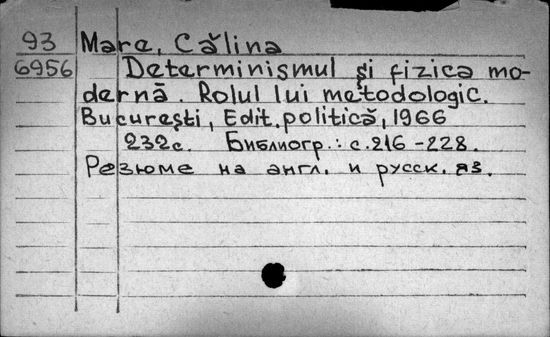 93 Mare, Călina
6956 Determinismul şi fizica mo-
dernă. Rolul lui metodologic.
Bucureşti, Edit. politică, 1966
232с. Библиогр.: с.216-228.
Резюме на англ. и русск. яз.